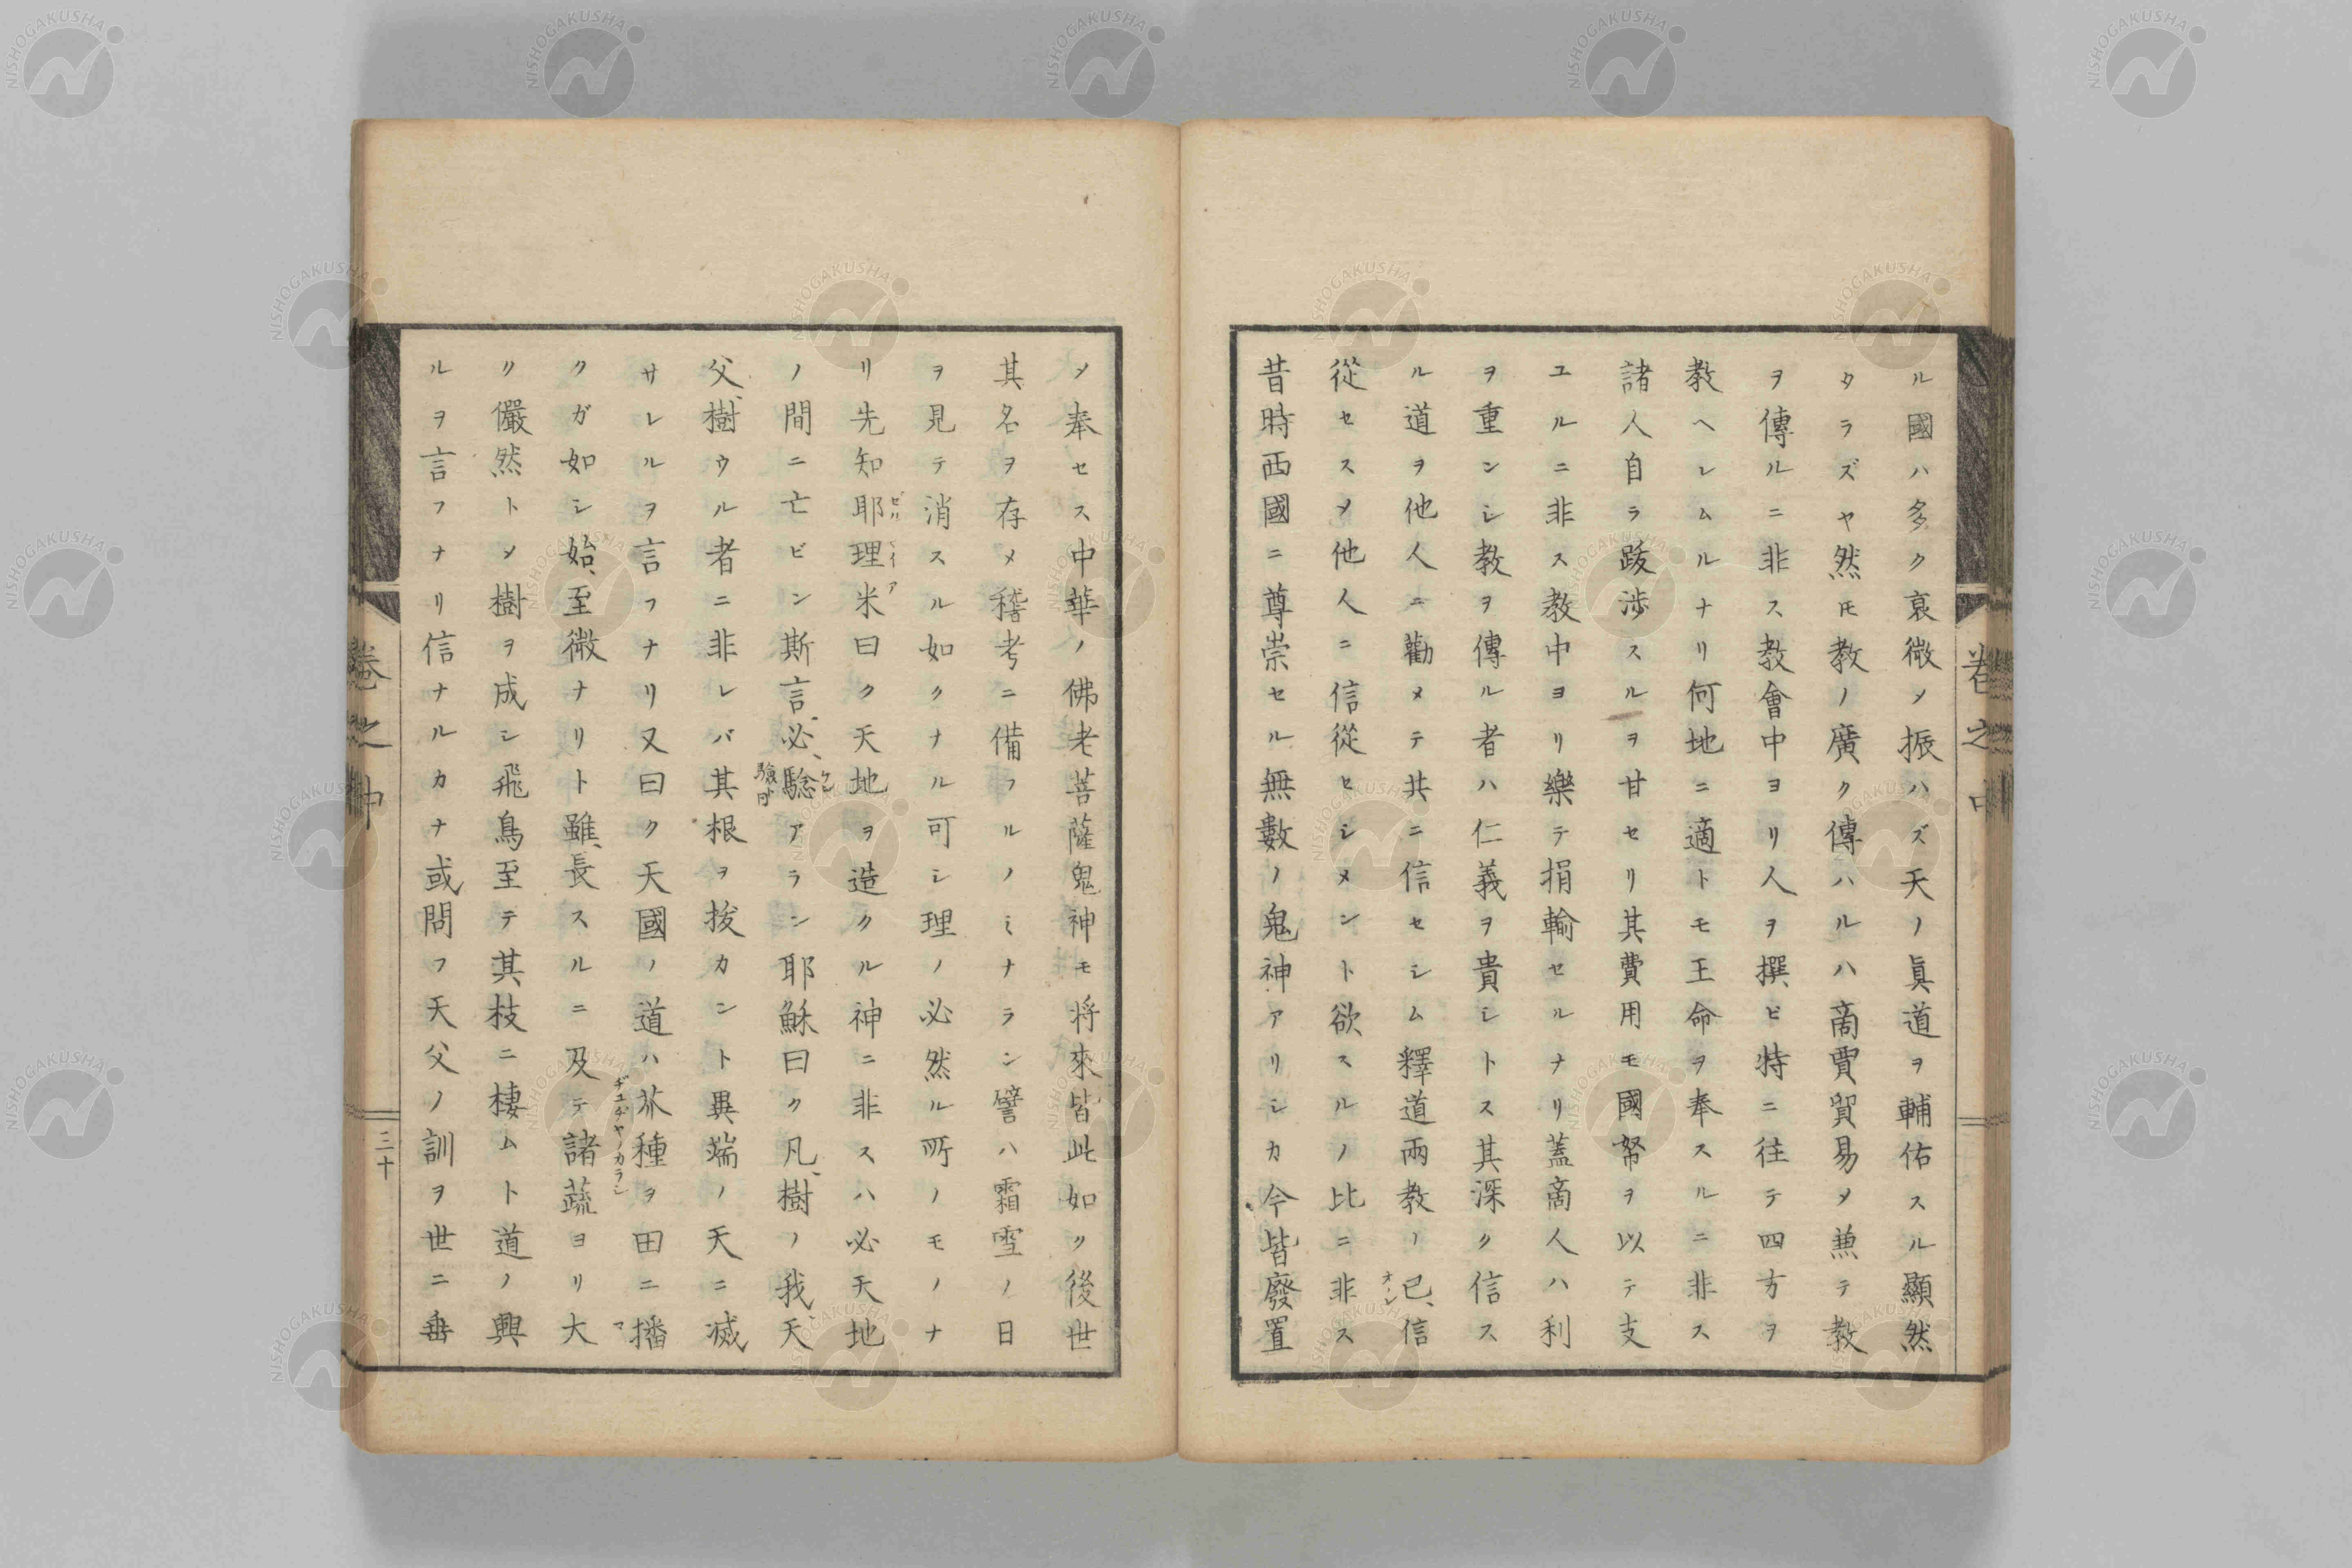 ル國ハ多ク衰微メ振ハズ天ノ眞道ヲ輔佑スル顯然
タラズヤ然モ教ノ廣ク傳ハルハ商賈貿易メ兼テ教
ヲ傳ルニ非ス教會中ヨリ人ヲ撰ビ特ニ往テ四方ヲ
教ヘレムルナリ何地ニ適トモ王命ヲ奉スルニ非ス
諸人自ラ跋渉スルヲ甘セリ其費用モ國帑ヲ以テ支
ユルニ非ス教中ヨリ樂テ捐輸セルナリ蓋商人ハ利
ヲ重ンシ教ヲ傳ル者ハ仁義ヲ貴シトス其深ク信ス
ル道ヲ他人ニ勸メテ共ニ信セシム釋道兩教ノ已信
從セスメ他人ニ信從セシメント欲スルノ比ニ非ス
昔時西國ニ尊崇セル無數ノ鬼神アリシカ今皆廢置
卷之中
メ奉セス中華ノ佛老菩薩鬼神モ將來皆此如ク後世
其名ヲ存メ稽考ニ備フルノミナラン譬ハ霜雪ノ日
ヲ見テ消スル如クナル可シ理ノ必然ル所ノモノナ
リ先知耶理米曰ク天地ヲ造クル神ニ非スハ必天地
ノ間ニ亡ビン斯言必騐アラン耶穌曰ク凡樹ノ我天
父樹ウル者ニ非レバ其根ヲ拔カント異端ノ天ニ滅
サレルヲ言フナリ又曰ク天國ノ道ハ芥種ヲ田ニ播
クガ如シ始至微ナリト雖長スルニ及テ諸蔬ヨリ大
リ儼然トメ樹ヲ成シ飛鳥至テ其枝ニ棲ムト道ノ興
ルヲ言フナリ信ナルカナ或問フ天父ノ訓ヲ世ニ垂
卷之中
三十
NISHOGAKUSHA